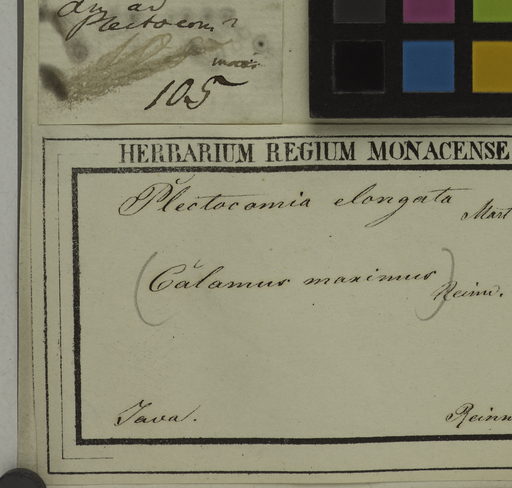 an ad
Plectocom
105
HERBARIUM REGIUM MONACENSE
Plectocomia elongata Mart
(Calamus maximus) Reinw.
Java. Reinw